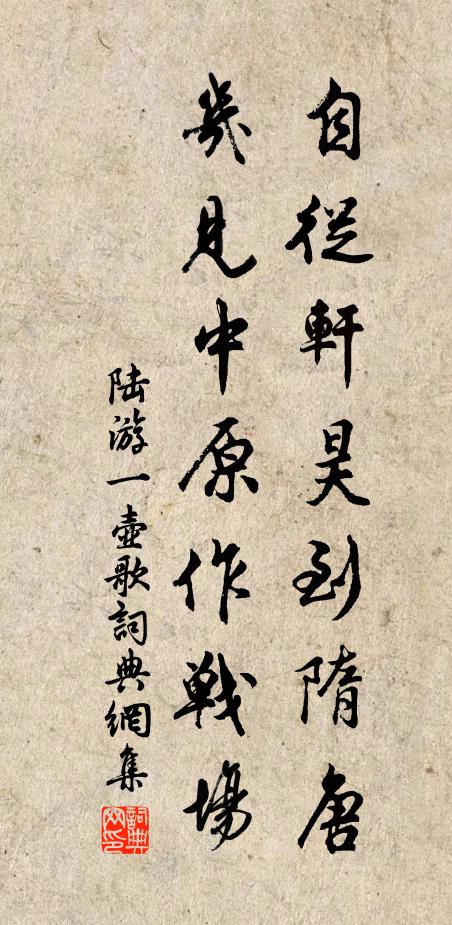 自從軒昊到隋唐
幾見中原作戰場
陆游一壺歌詞典網集
詞典
网印